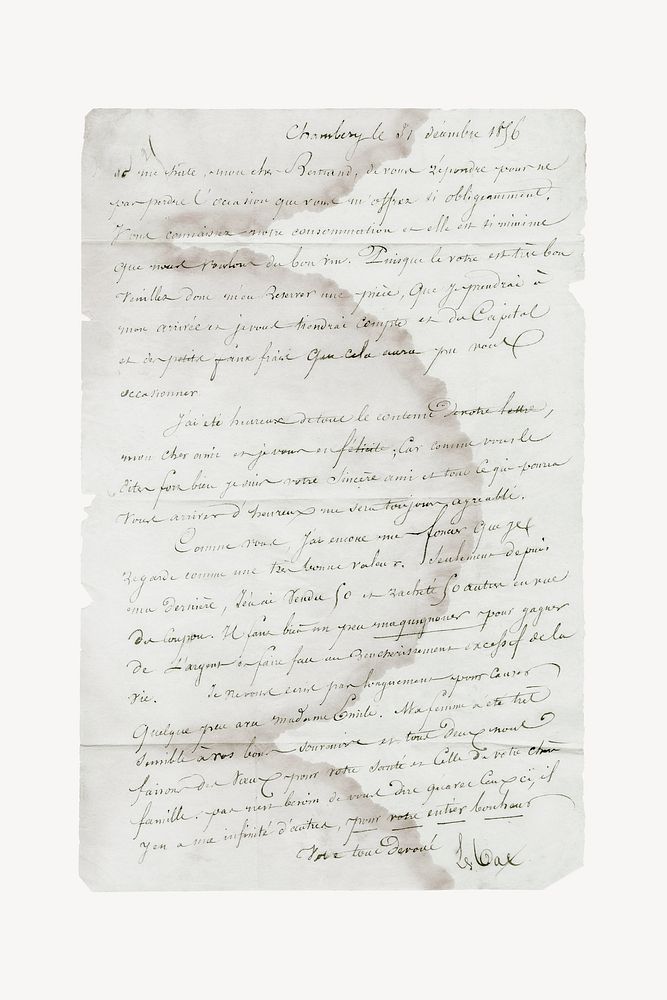 Chambery le 31 décembre 1856
me hâte, mon cher Bertrand, de vous répondre pour ne
pas perdre l'occasion que vous m'offrez si obligeamment.
Vous connaissez notre consommation et elle est si minime
que nous voulons du bon vin. Puisque le votre est très bon
veuillez donc m'en réserver une pièce, que je prendrai à
mon arrivée et je vous tiendrai compte et du Capital
et des petits faux frais que cela aura pu vous
occasionner
J'ai été heureux de tout le contenu de votre lettre,
mon cher ami et je vous en félicite, Car comme vous le
dites fort bien je suis votre sincère ami et tout ce qui pourra
vous arriver d'heureux me sera toujours agréable.
Comme vous, j'ai encore me foncier que je
regarde comme une très bonne valeur. Seulement depuis
ma dernière, j'en ai vendu 50 et racheté 50 autres en vue
du Coupon. Il faut bien un peu maquignoner pour gagner
de l'argent et faire face au renchérissement excessif de la
vie. Je ne vous écris pas longuement pour causer
quelque peu avec madame Emile. Ma femme a été très
sensible à vos bons souvenirs et tous deux nous
faisons des vœux pour votre santé et celle de votre chère
famille. pas n'est besoin de vous dire qu'avec ceux ci, il
y en a une infinité d'autres, pour votre entier bonheur
Votre tout dévoué